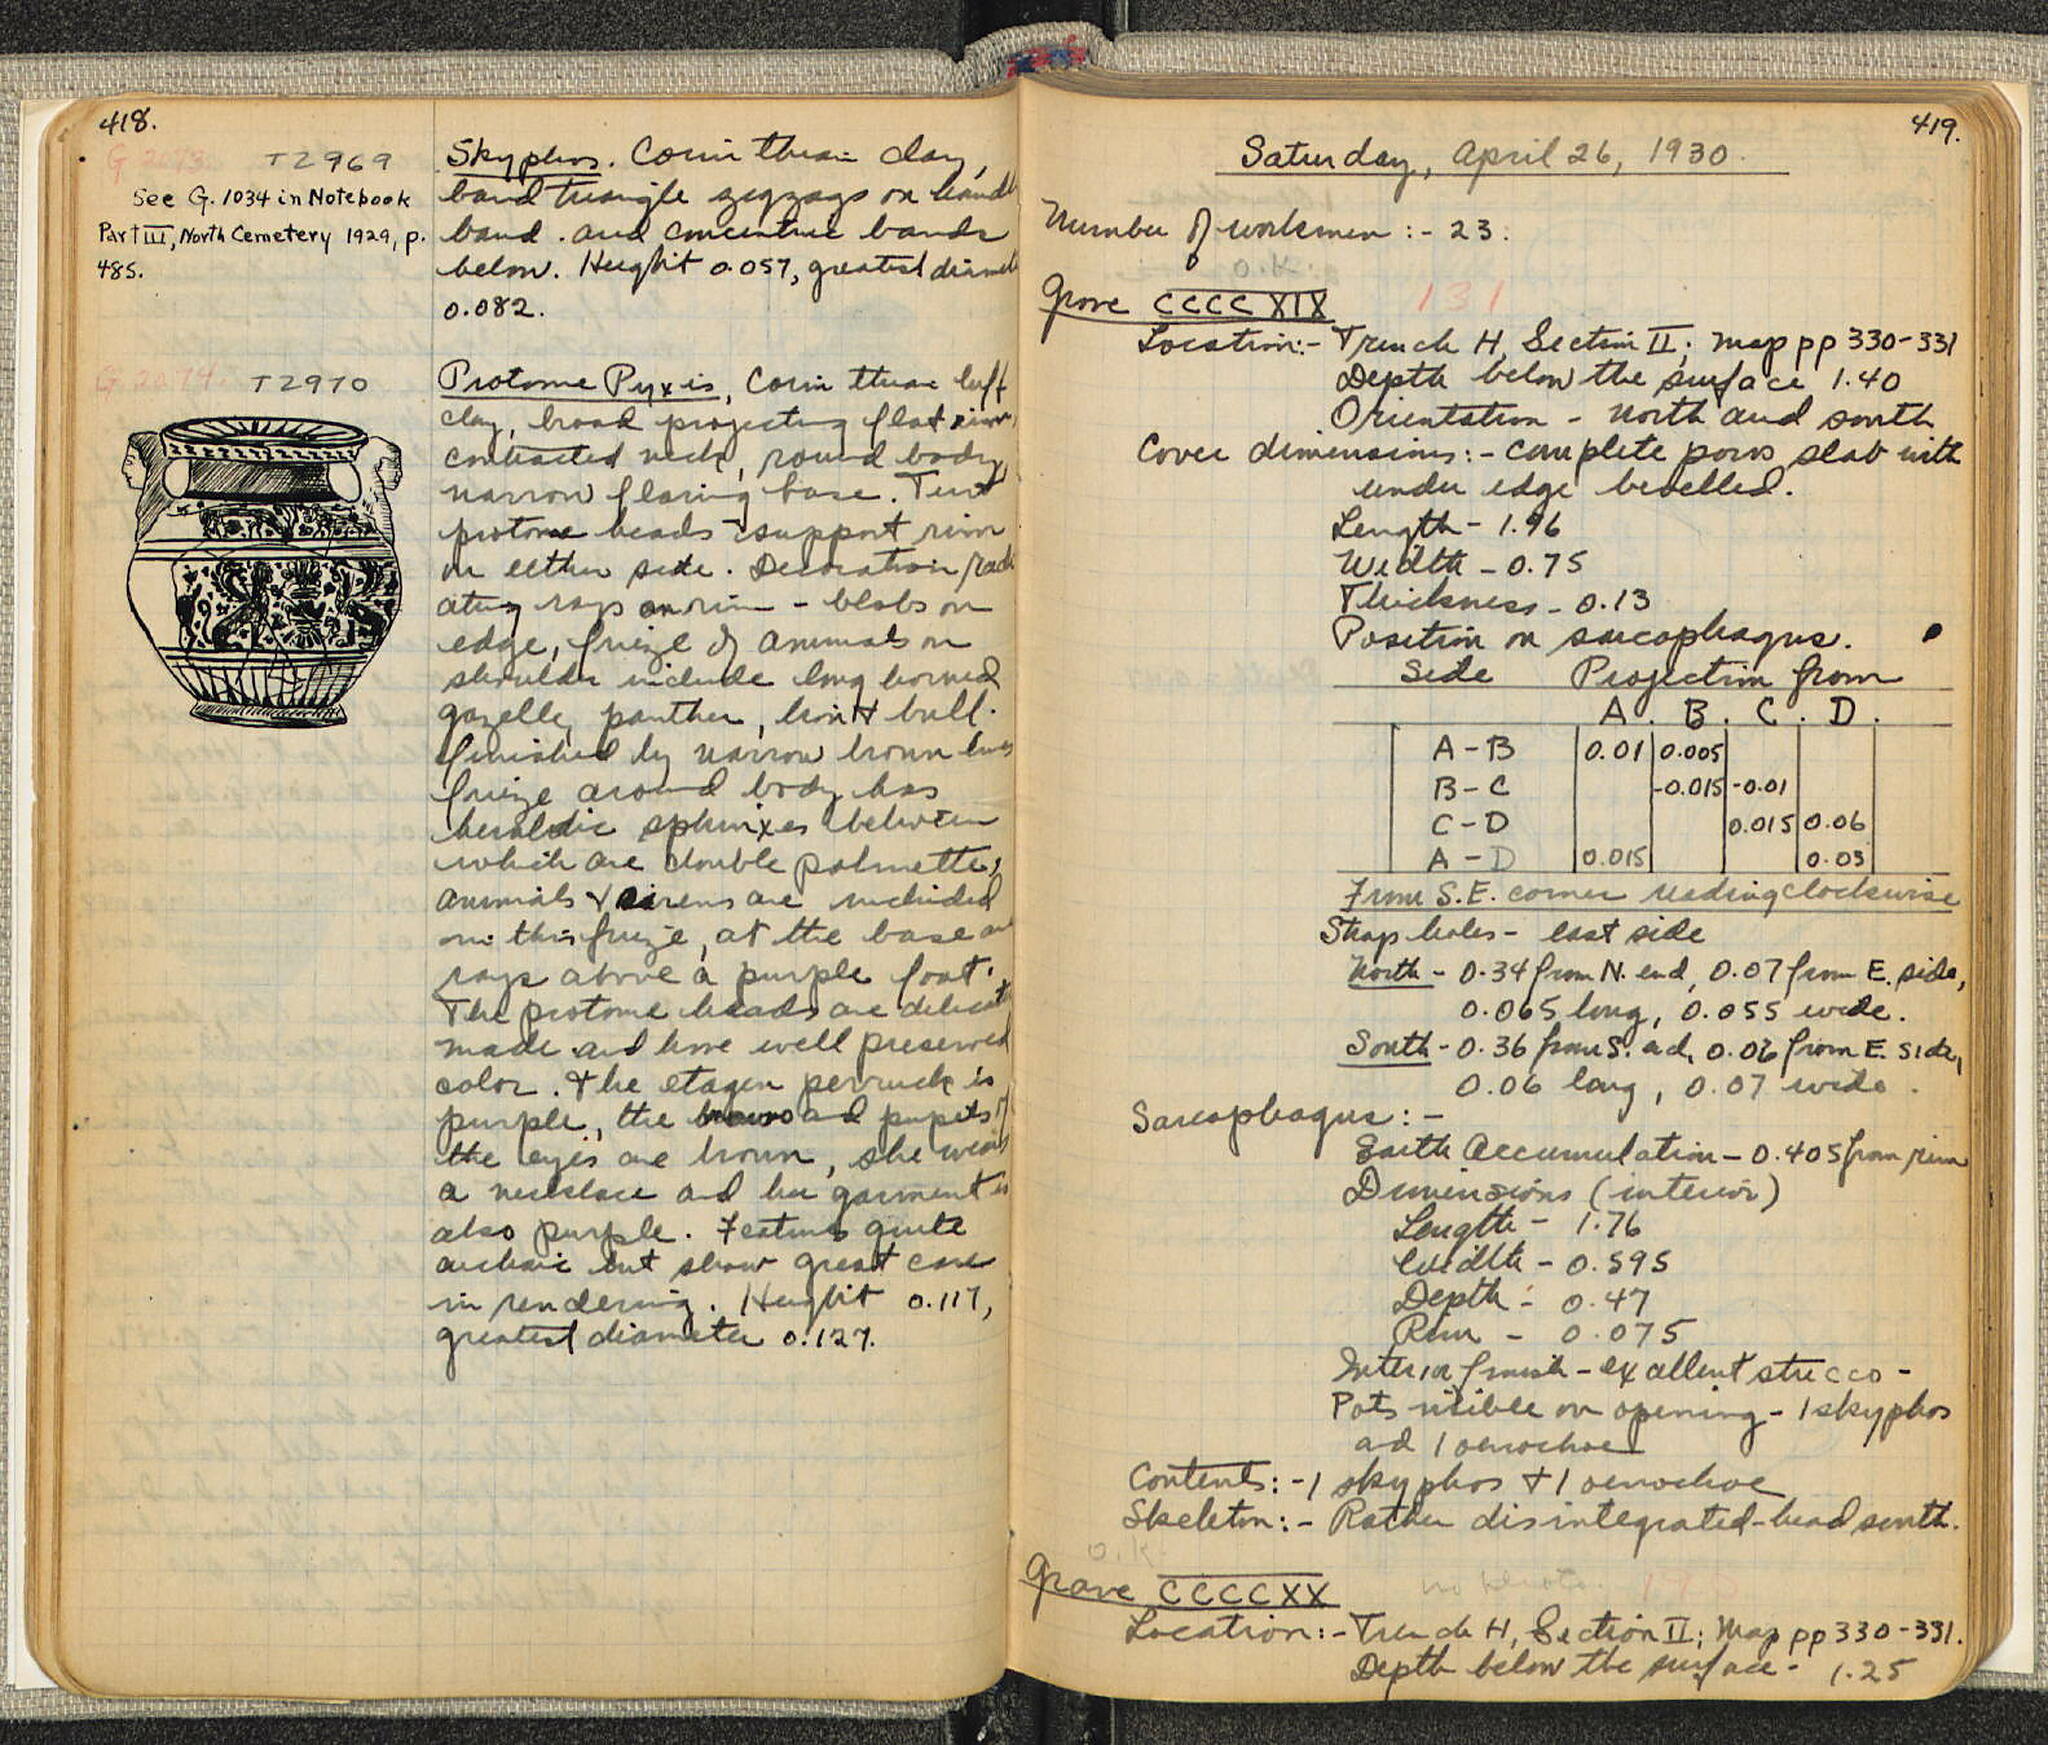 418.
G 2073. T2969
See G. 1034 in Notebook
Part III, North Cemetery 1929, p.
485.
Skyphos. Corinthian clay,
band triangle zigzags on handle
band. and concentric bands
below. Height 0.057, greatest diamet
0.082.
G 2074. T2970
Protome Pyxis, Corinthian buff
clay, broad projecting flat rim,
contracted neck, round body
narrow flaring base. Two
protome heads support rim
on either side. Decoration, radi
ating rays on rim - blobs on
edge, frieze of animals on
shoulder include long horned
gazelle, panther, lion & bull.
finished by narrow brown lines
frieze around body has
heraldic sphinxes between
which are double palmettes,
animals & sirens are included
on this frieze, at the base are
rays above a purple foot.
The protome heads are delicately
made and have well preserved
color. The etagen perrucke is
purple, the brows and pupils of
the eyes are brown, she wears
a necklace and her garment is
also purple. Features quite
archaic but show great care
in rendering. Height 0.117,
greatest diameter 0.127.
419.
Saturday, April 26, 1930.
Number of workmen :- 23.
O.K.
Grave CCCCXIX 131
Location:- Trench H, Section II; Map pp 330-331
Depth below the surface 1.40
Orientation - North and south
Cover dimensions:- complete poros slab with
under edge bevelled.
Length - 1.96
Width - 0.75
Thickness - 0.13
Position on sarcophagus.
Side Projection from
A. B. C. D.
A-B 0.01 0.005
B-C -0.015 -0.01
C-D 0.015 0.06
A-D 0.015 0.03
From S.E. corner reading clockwise
Strap holes - east side
North - 0.34 from N. end, 0.07 from E. side,
0.065 long, 0.055 wide.
South - 0.36 from S. end, 0.06 from E. side,
0.06 long, 0.07 wide.
Sarcophagus:-
Earth Accumulation - 0.405 from rim
Dimensions (interior)
Length - 1.76
Width - 0.595
Depth - 0.47
Rim - 0.075
Interior finish - excellent stucco -
Pots visible on opening - 1 skyphos
and 1 oenochoe
Contents:- 1 skyphos & 1 oenochoe
Skeleton:- Rather disintegrated - head south.
O.K.
Grave CCCCXX no photo.
Location:- Trench H, Section II; Map pp 330-331.
Depth below the surface - 1.25